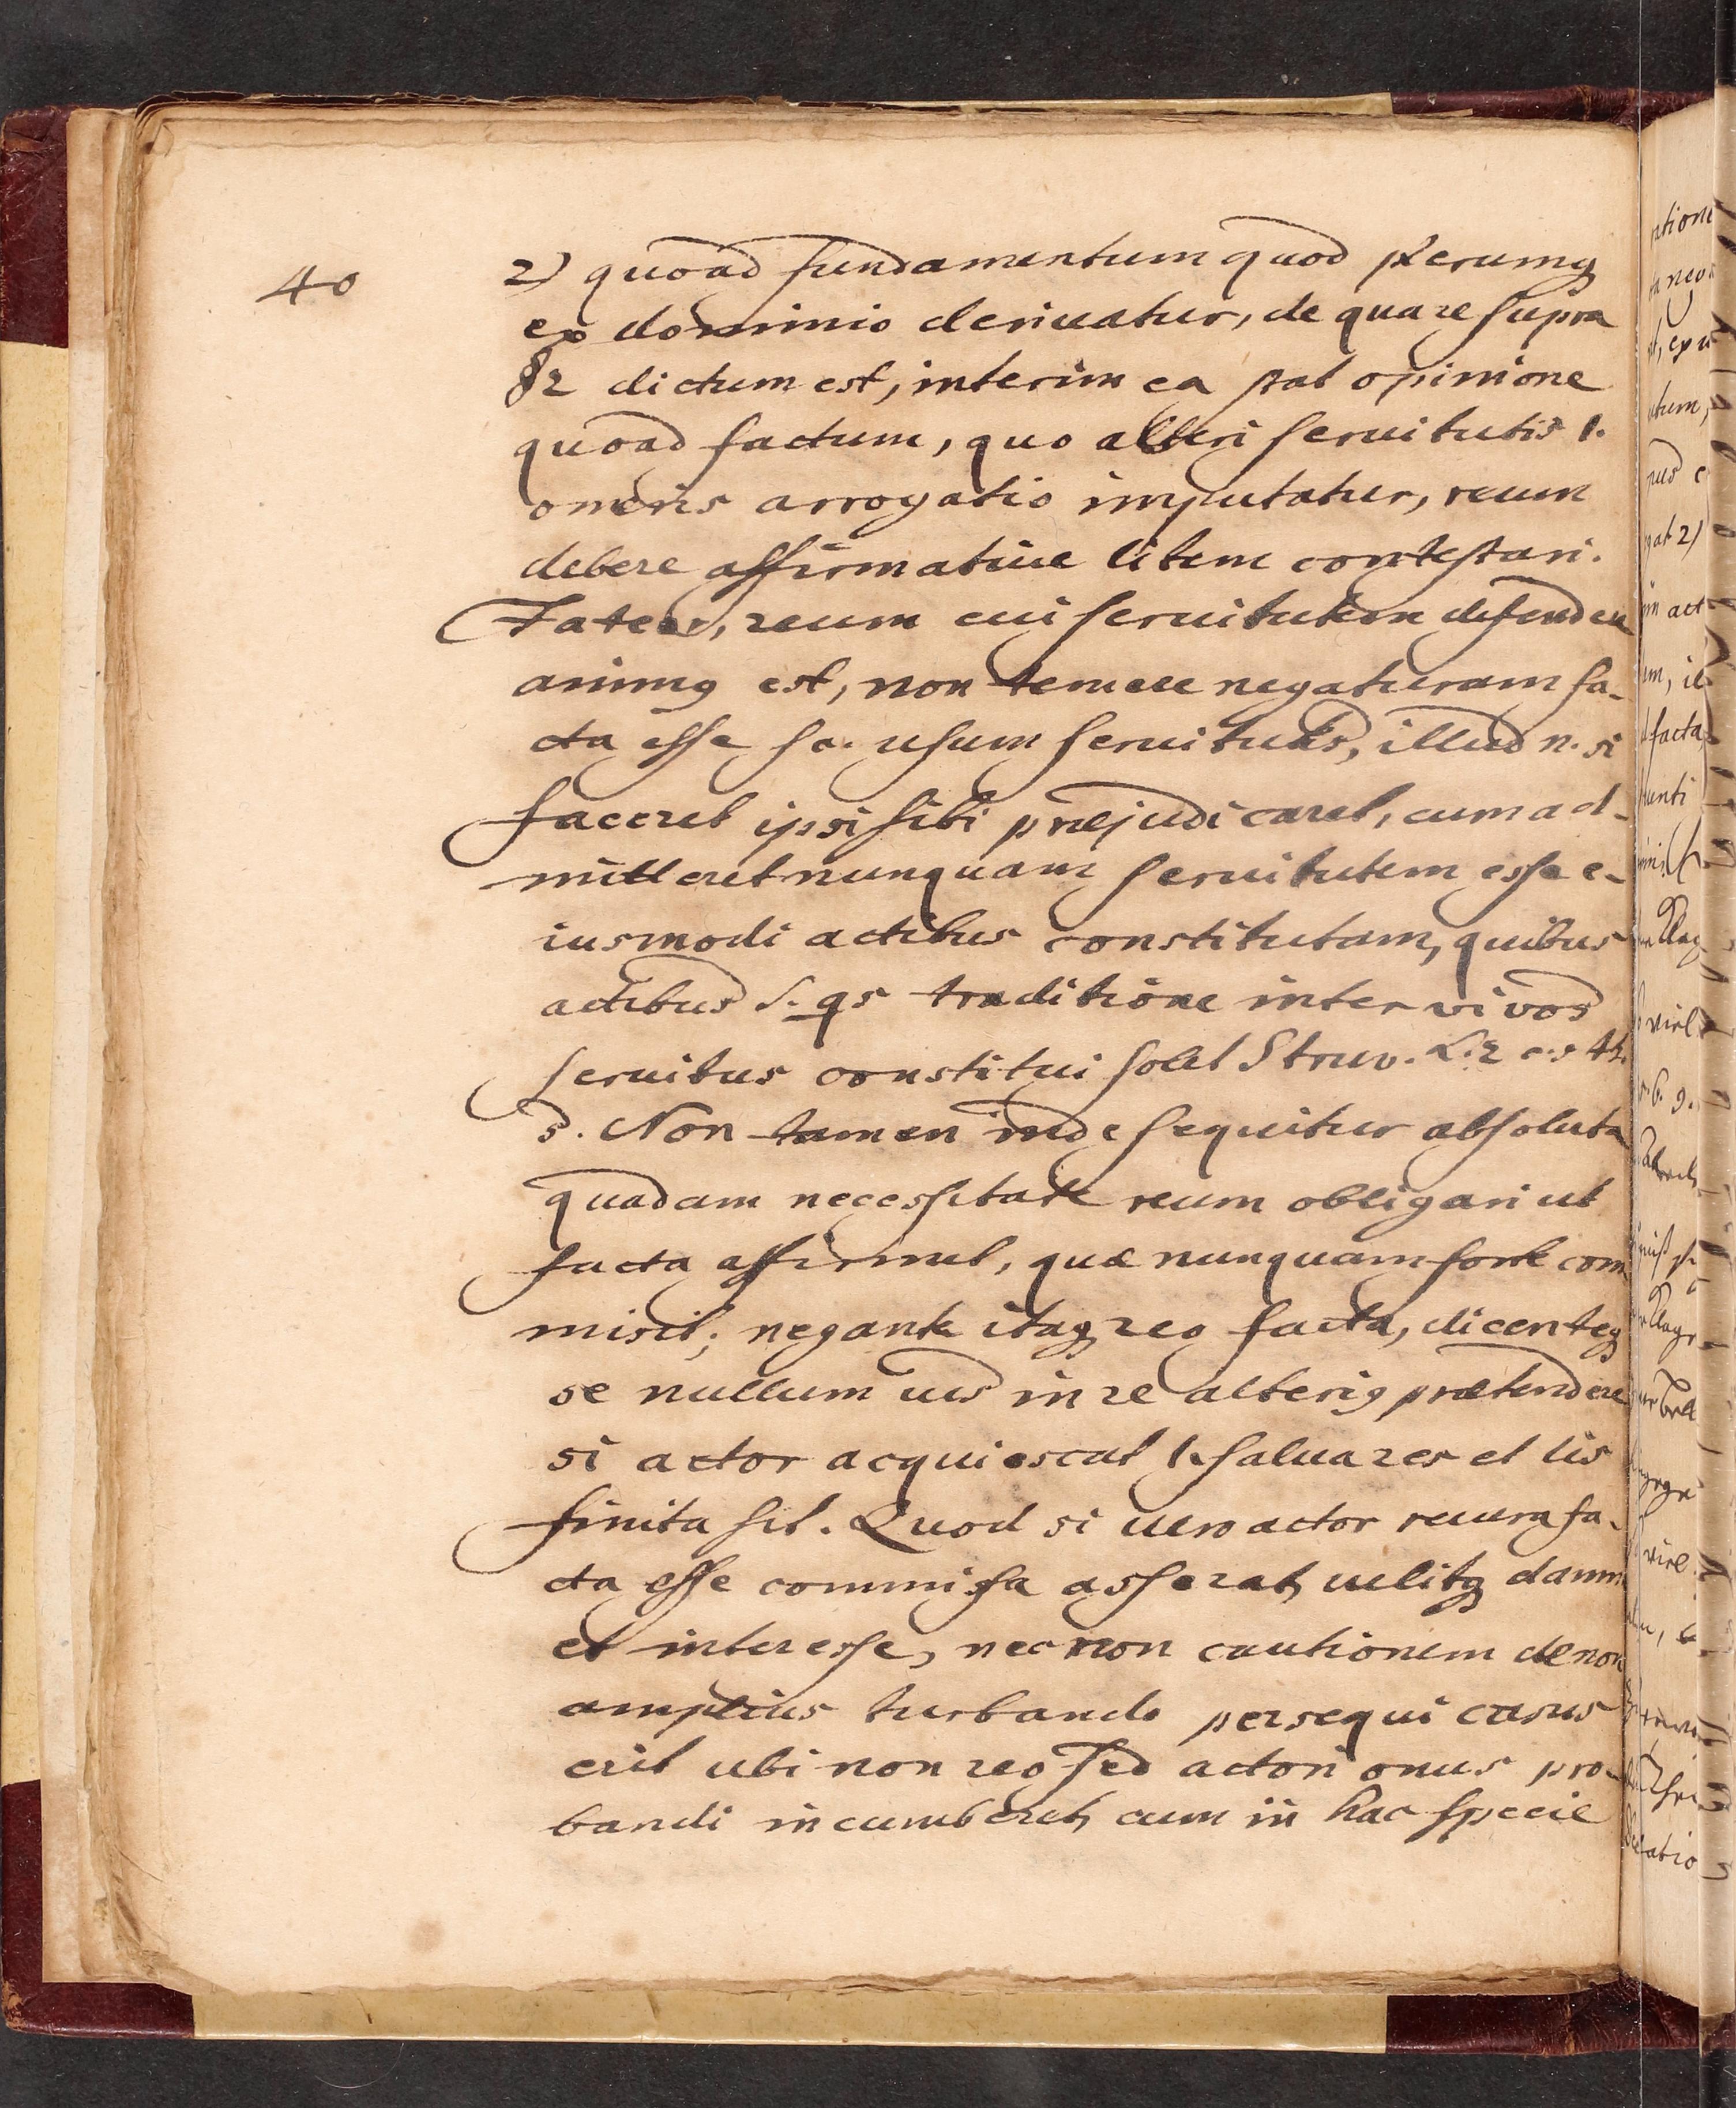 40
2) quoad fundamentum quod plerumq
ex dominio derivatur, de qua re supra
§ 2 dictum est, interim ea stat opinione
quoad factum, quo alteri servitutis l.
oneris arrogatio imputatur, reum
debere affirmative litem contestari.
Fateor, reum cui servitutem defendere
animq est, non temere negaturam fa-
cta esse sc. usum servitutis, illud n. si
faceret ipsi sibi præjudicaret, cum ad-
mitteret nunquam servitutem esse e-
iusmodi actibus constitutam, quibus
actibus s. qs traditione inter vivos
servitus constitui solet Struv. L. 2 th.
3. Non tamen inde sequitur absoluta
quadam necessitate reum obligari ut
facta affirmet, quæ nunquam forte com
misit; negante itaq reo facta, dicenteq
se nullum ius in re alteriq prætendere
si actor acquiescat salva res et lis
finita sit. Quod si vero actor revera fa-
cta esse commissa asserat, velitq damn
et interesse, nec non cautionem de non
amplius turbando persequi casus
erit ubi non reo sed actori onus pro-
bandi incumberet, cum in hac specie